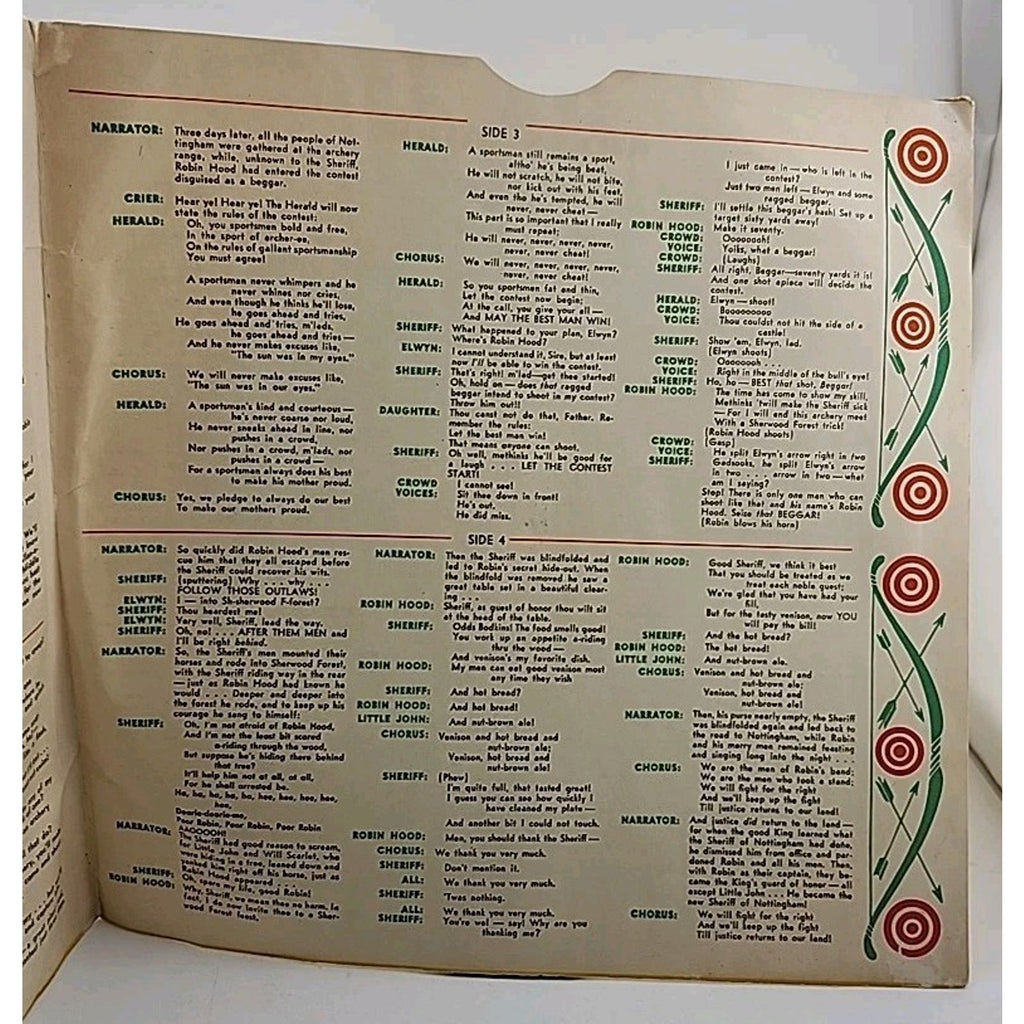 SIDE 3
NARRATOR: Three days later, all the people of Not-
tingham were gathered at the archery
range, while, unknown to the Sheriff,
Robin Hood had entered the contest
disguised as a beggar.
CRIER: Hear ye! Hear ye! The Herald will now
state the rules of the contest:
HERALD: Oh, you sportsmen bold and free,
In the sport of archer-ee,
On the rules of gallant sportsmanship
You must agree!
A sportsman never whimpers and he
never whines nor cries,
And even though he thinks he'll lose,
he goes ahead and tries,
He goes ahead and tries, m'lads,
he goes ahead and tries—
And he never makes excuses like,
"The sun was in my eyes."
CHORUS: We will never make excuses like,
"The sun was in our eyes."
HERALD: A sportsman's kind and courteous—
he's never coarse nor loud,
He never sneaks ahead in line, nor
pushes in a crowd,
Nor pushes in a crowd, m'lads, nor
pushes in a crowd—
For a sportsman always does his best
to make his mother proud.
CHORUS: Yes, we pledge to always do our best
To make our mothers proud.
HERALD: A sportsman still remains a sport,
altho' he's being beat,
He will not scratch, he will not bite,
nor kick out with his feet,
And even tho he's tempted, he will
never, never cheat—
This part is so important that I really
must repeat;
He will never, never, never, never,
never, never cheat!
CHORUS: We will never, never, never, never,
never, never cheat!
HERALD: So you sportsmen fat and thin,
Let the contest now begin;
At the call, you give your all—
And MAY THE BEST MAN WIN!
SHERIFF: What happened to your plan, Elwyn?
Where's Robin Hood?
ELWYN: I cannot understand it, Sire, but at least
now I'll be able to win the contest.
SHERIFF: That's right! m'lad—get thee started!
Oh, hold on—does that ragged
beggar intend to shoot in my contest?
Throw him out!!
DAUGHTER: Thou canst not do that, Father. Re-
member the rules:
Let the best man win!
That means anyone can shoot.
SHERIFF: Oh well, methinks he'll be good for
a laugh . . . LET THE CONTEST
START!
CROWD VOICES: I cannot see!
Sit thee down in front!
He's out.
He did miss.
I just came in—who is left in the
contest?
Just two men left—Elwyn and some
ragged beggar.
SHERIFF: I'll settle this beggar's hash! Set up a
target sixty yards away!
ROBIN HOOD: Make it seventy.
CROWD: Oooooooh!
VOICE: Yoiks, what a beggar!
CROWD: (Laughs)
SHERIFF: All right, Beggar—seventy yards it is!
And one shot apiece will decide the
contest.
HERALD: Elwyn—shoot!
CROWD: Booooooooo
VOICE: Thou couldst not hit the side of a
castle!
SHERIFF: Show 'em, Elwyn, lad.
(Elwyn shoots)
CROWD: Ooooooooh . . .
VOICE: Right in the middle of the bull's eye!
SHERIFF: Ho, ho—BEST that shot, Beggar!
ROBIN HOOD: The time has come to show my skill,
Methinks 'twill make the Sheriff sick
—For I will end this archery meet
With a Sherwood Forest trick!
(Robin Hood shoots)
CROWD: (Gasp)
VOICE: He split Elwyn's arrow right in two
SHERIFF: Gadsooks, he split Elwyn's arrow
in two . . . arrow in two—what
am I saying?
Stop! There is only one man who can
shoot like that and his name's Robin
Hood. Seize that BEGGAR!
(Robin blows his horn)
SIDE 4
NARRATOR: So quickly did Robin Hood's men res-
cue him that they all escaped before
the Sheriff could recover his wits.
SHERIFF: (sputtering) Why . . . why . . .
FOLLOW THOSE OUTLAWS!
ELWYN: I—into Sh-sherwood F-forest?
SHERIFF: Thou heardest me!
ELWYN: Very well, Sheriff, lead the way.
SHERIFF: Oh, no! . . . AFTER THEM MEN and
I'll be right behind.
NARRATOR: So, the Sheriff's men mounted their
horses and rode into Sherwood Forest,
with the Sheriff riding way in the rear
—just as Robin Hood had known he
would . . . Deeper and deeper into
the forest he rode, and to keep up his
courage he sang to himself:
SHERIFF: Oh, I'm not afraid of Robin Hood,
And I'm not the least bit scared
a-riding through the wood,
But suppose he's hiding there behind
that tree?
It'll help him not at all, at all,
For he shall arrested be.
Ha, ha, ha, ha, ha, hee, hee, hee, hee,
hee,
Dearie-dearie-me,
Poor Robin, Poor Robin, Poor Robin
AAOOOOH!
NARRATOR: The Sheriff had good reason to scream,
for Little John and Will Scarlet, who
were hiding in a tree, leaned down and
yanked him right off his horse, just as
Robin Hood appeared . . .
SHERIFF: Oh, spare my life, good Robin!
ROBIN HOOD: Why, Sheriff, we mean thee no harm. In
fact, I do now invite thee to a Sher-
wood Forest feast.
NARRATOR: Then the Sheriff was blindfolded and
led to Robin's secret hide-out. When
the blindfold was removed he saw a
great table set in a beautiful clear-
ing . . .
ROBIN HOOD: Sheriff, as guest of honor thou wilt sit
at the head of the table.
SHERIFF: Odds Bodkins! The food smells good!
You work up an appetite a-riding
thru the wood—
And venison's my favorite dish.
ROBIN HOOD: My men can eat good venison most
any time they wish
SHERIFF: And hot bread?
ROBIN HOOD: And hot bread!
LITTLE JOHN: And nut-brown ale!
CHORUS: Venison and hot bread and
nut-brown ale;
Venison, hot bread and
nut-brown ale!
SHERIFF: (Phew)
I'm quite full, that tasted great!
I guess you can see how quickly I
have cleaned my plate—
And another bit I could not touch.
ROBIN HOOD: Men, you should thank the Sheriff—
CHORUS: We thank you very much.
SHERIFF: Don't mention it.
ALL: We thank you very much.
SHERIFF: 'Twas nothing.
ALL: We thank you very much.
SHERIFF: You're wel—say! Why are you
thanking me?
ROBIN HOOD: Good Sheriff, we think it best
That you should be treated as we
treat each noble guest;
We're glad that you have had your
fill,
But for the tasty venison, now YOU
will pay the bill!
SHERIFF: And the hot bread?
ROBIN HOOD: The hot bread!
LITTLE JOHN: And nut-brown ale.
CHORUS: Venison and hot bread and
nut-brown ale;
Venison, hot bread and
nut-brown ale!
NARRATOR: Then, his purse nearly empty, the Sheriff
was blindfolded again and led back to
the road to Nottingham, while Robin
and his merry men remained feasting
and singing long into the night . . .
CHORUS: We are the men of Robin's band;
We are the men who took a stand;
We will fight for the right
And we'll keep up the fight
Till justice returns to our land!
NARRATOR: And justice did return to the land—
for when the good King learned what
the Sheriff of Nottingham had done,
he dismissed him from office and par-
doned Robin and all his men. Then,
with Robin as their captain, they be-
came the King's guard of honor—all
except Little John . . . He became the
new Sheriff of Nottingham!
CHORUS: We will fight for the right
And we'll keep up the fight
Till justice returns to our land!